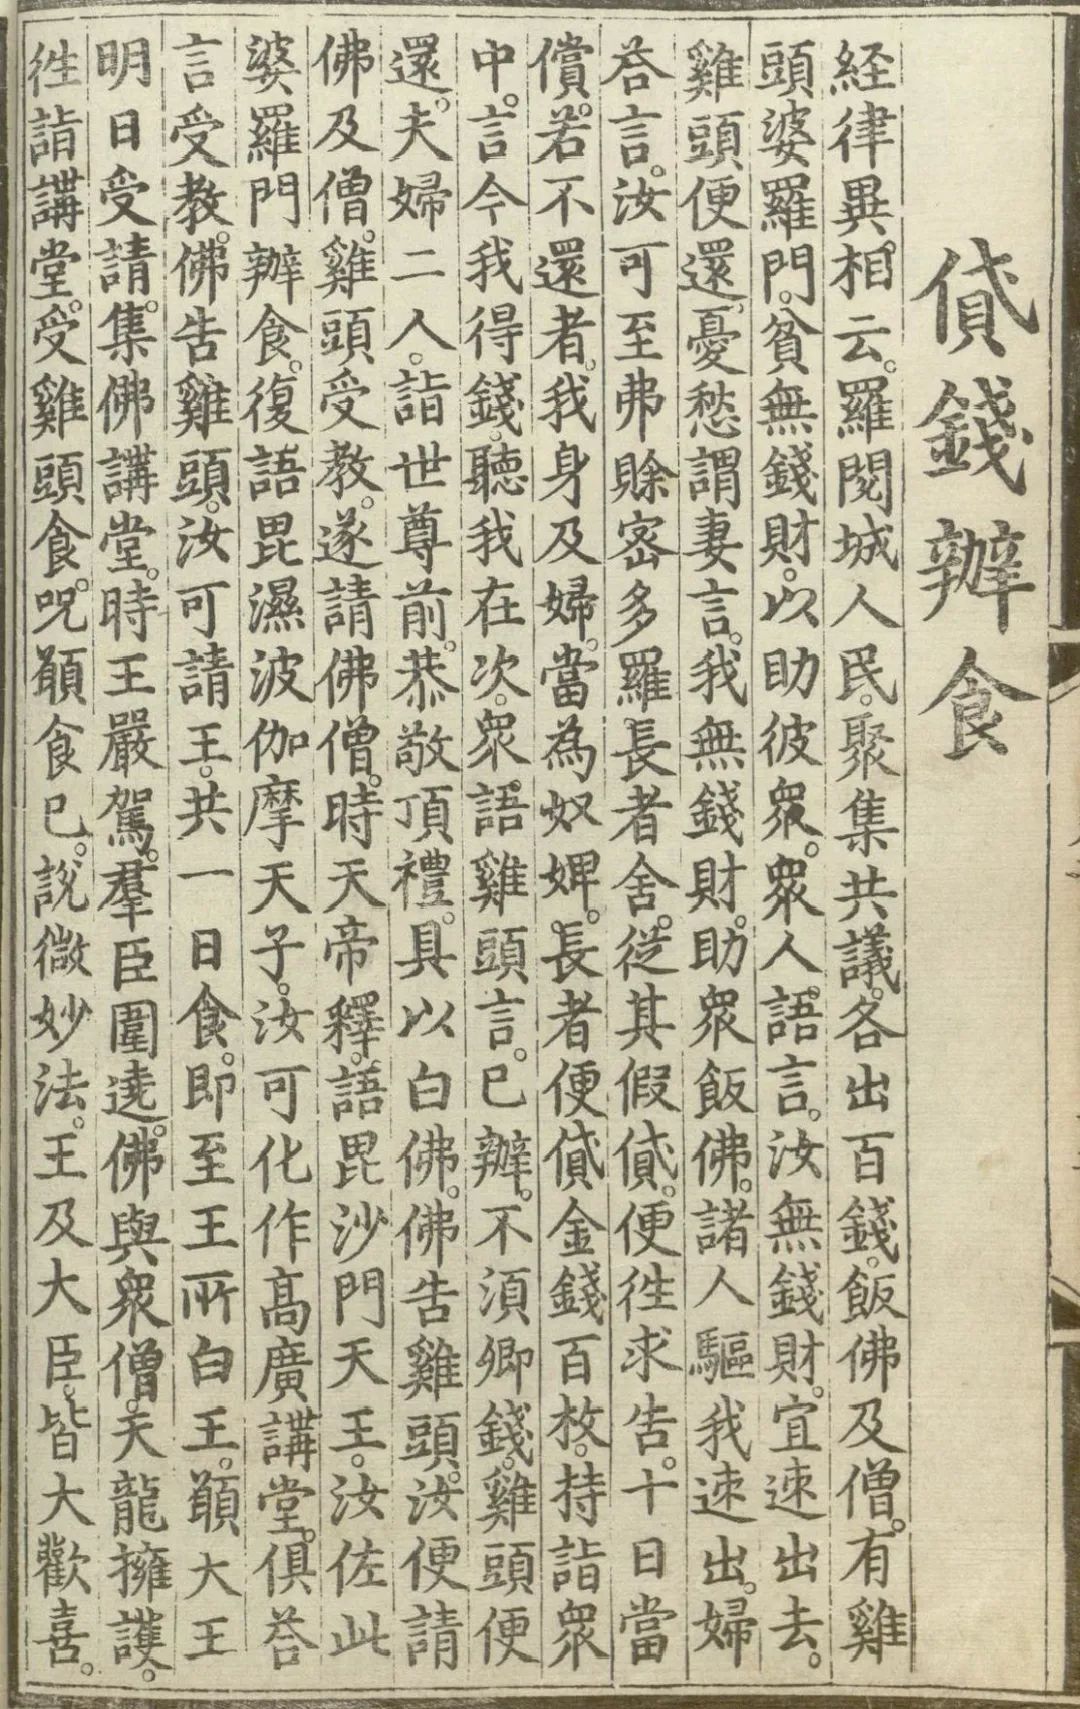 貸錢辦食
經律異相云。羅閱城人民。聚集共議。各出百錢。飯佛及僧。有雞
頭婆羅門。貧無錢財。以助彼衆。衆人。語言。汝無錢財。宜速出去。
雞頭便還。憂愁謂妻言。我無錢財。助衆飯佛。諸人驅我速出。婦
荅言。汝可至弗賒宻多羅長者舍。從其假貸。便徃求告。十日當
償。若不還者。我身及婦。當為奴婢。長者便貸金錢百枚。持詣衆
中。言今我得錢。聽我在次。衆語雞頭言。已辦。不須卿錢。雞頭便
還。夫婦二人。詣世尊前。恭敬頂禮。具以白佛。佛告雞頭。汝便請
佛及僧。雞頭受教。遂請佛僧。時天帝釋。語毘沙門天王。汝佐此
婆羅門辦食。復語毘濕波伽摩天子。汝可化作高廣講堂。俱荅
言受教。佛告雞頭。汝可請王。共一日食。即至王所白王。願大王
明日受請。集佛講堂。時王嚴駕。羣臣圍遶。佛與衆僧。天龍擁護。
徃詣講堂。受雞頭食。呪願食已。說微妙法。王及大臣。皆大歡喜。